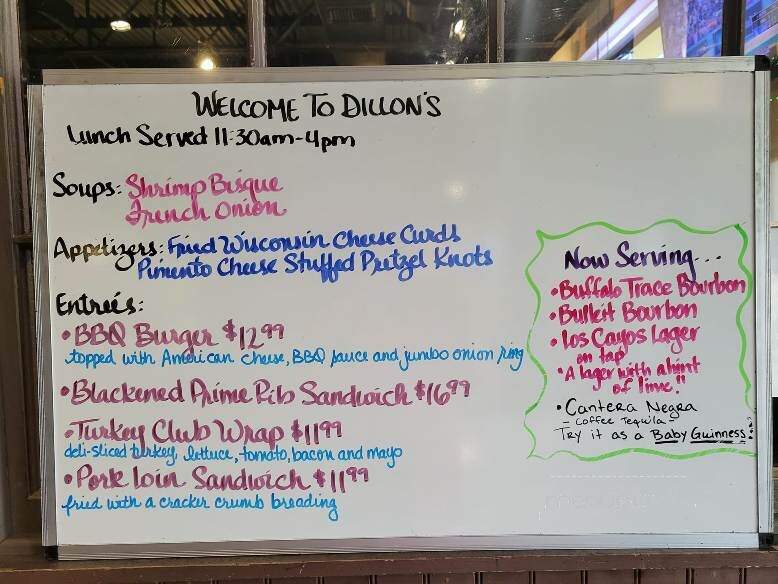 WELCOME TO DILLON'S
Lunch Served 11:30am-4pm
Soups: Shrimp Bisque
French Onion
Appetizers: Fried Wisconsin Cheese Curds
Pimento Cheese Stuffed Pretzel Knots
Entrées:
• BBQ Burger $12.99
topped with American cheese, BBQ sauce and jumbo onion ring
• Blackened Prime Rib Sandwich $16.99
• Turkey Club Wrap $11.99
deli-sliced turkey, lettuce, tomato, bacon and mayo
• Pork loin Sandwich $11.99
fried with a cracker crumb breading
Now Serving...
• Buffalo Trace Bourbon
• Bulleit Bourbon
• Los Cayos Lager
on tap
"A lager with a hint
of lime."
• Cantera Negra
- Coffee Tequila -
Try it as a Baby Guinness!